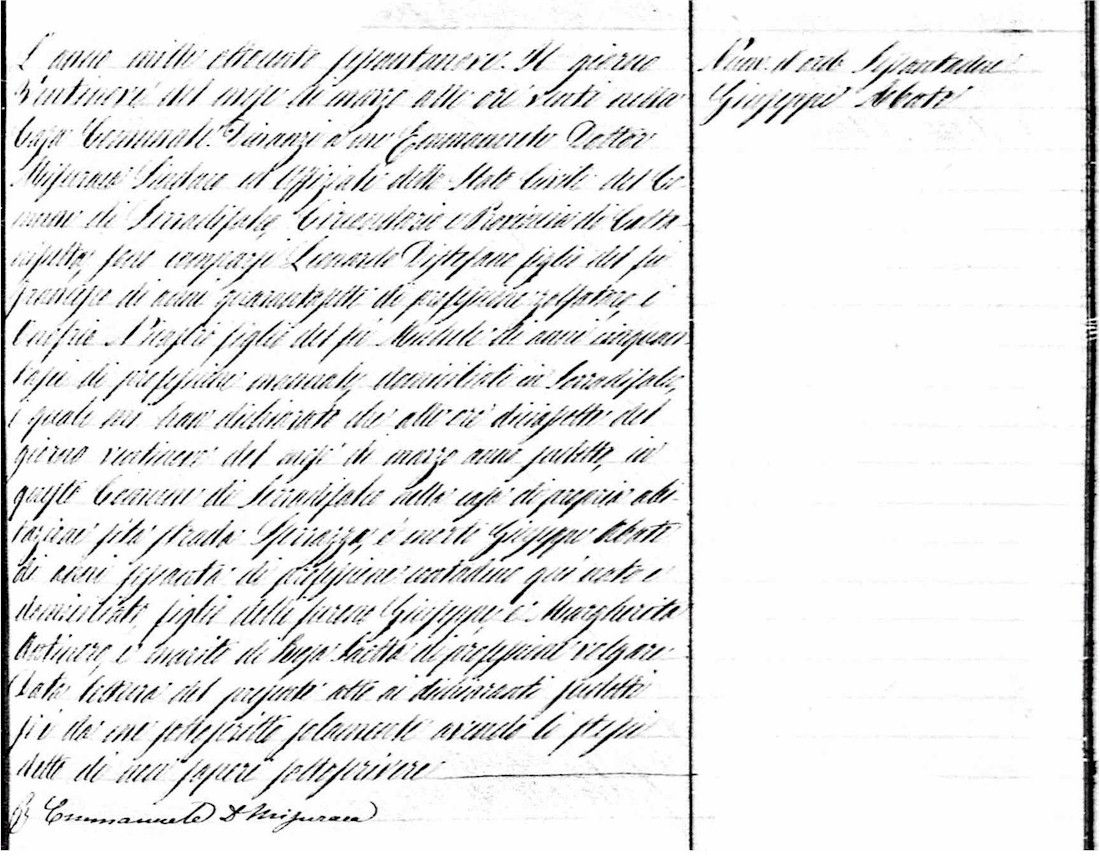 L'anno mille ottocento settantanove. Il giorno
Ventinove del mese di marzo alle ore venti nella
Casa Comunale. Dinanzi a me Emmanuele Dottor
Misuraca Sindaco ed Uffiziale dello Stato Civile del Co-
mune di Serradifalco, Circondario e Provincia di Calta-
nissetta, sono comparsi Leonardo Distefano figlio del fu
Francesco di anni quarantasette di professione zolfataro, e
Onofrio figlio del fu Michele di anni cinquan-
tasei di professione manuale, domiciliati in Serradifalco,
i quali mi han dichiarato che alle ore diciassette del
giorno ventinove del mese di marzo anno sudetto, in
questo Comune di Serradifalco nella casa di propria abi-
tazione sita strada è morto Giuseppe Abate
di anni settanta di professione contadino qui nato e
domiciliato, figlio delli furono Giuseppe, e Margherita
e marito di Rosa di professione volgare
Data lettura del presente atto ai dichiaranti sudetti
si è da me sottoscritto solamente avendo li stessi
detto di non sapere sottoscrivere
Emmanuele D Misuraca
Num. d'ord. Settantadue
Giuseppe Abate